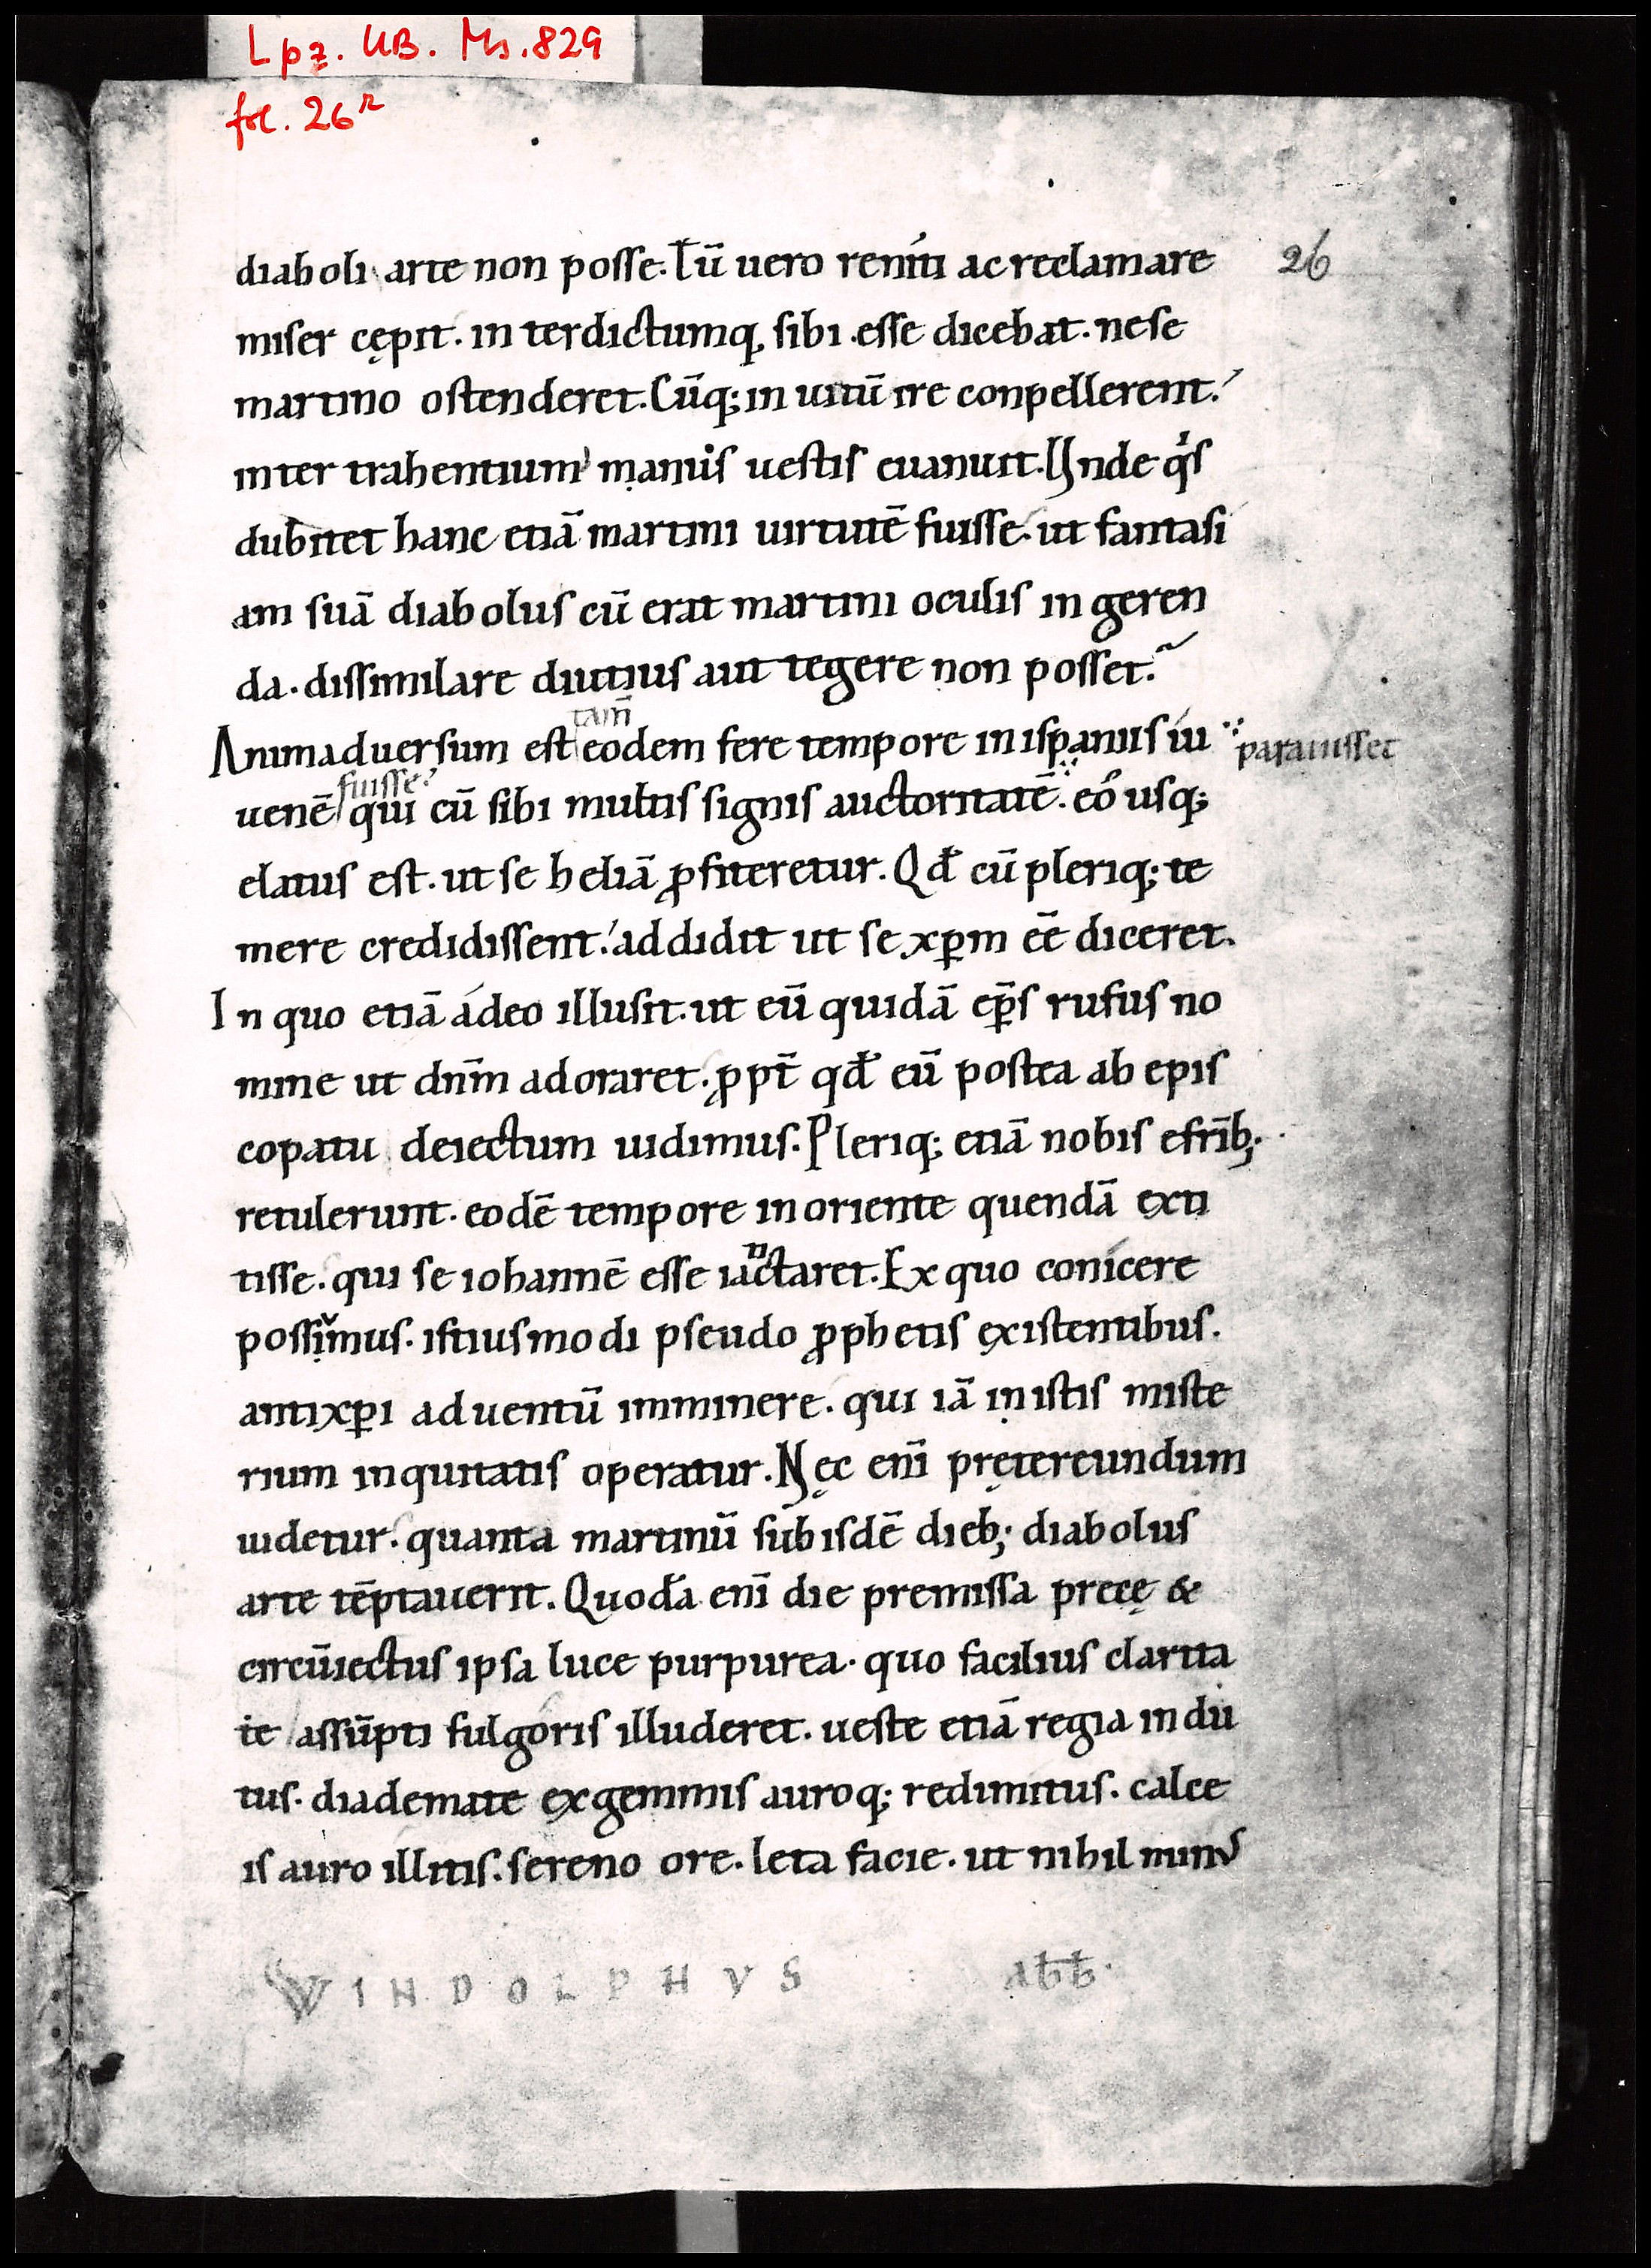 Lpz. UB. Ms. 829
fol. 26r
diaboli arte non posse. Tū uero reniti ac reclamare
26
miser cępit. in terdictumq, sibi esse dicebat. nese
martino ostenderet. Cūq; in uitū ire conpellerent.
inter trahentium manus uestis euanuit. Unde qis
dubitet hanc etiā martini uirtutē fuisse. ut fantasi
am suā diabolus cū erat martini oculis in geren
da. dissimilare diutius aut tegere non posset.
tam̄
Animaduersum est eodem fere tempore in ispaniis iu
parauisset
fuisse
uenē qui cū sibi multis signis auctoritatē. eo usq;
elatus est. ut se heliā ꝓfiteretur. Qđ cū pleriq; te
mere credidissent. addidit ut se xp̄m eē diceret.
In quo etiā adeo illusit. ut eū quidā ep̄s rufus no
mine ut dnm̄ adoraret. ꝓpt̄ qđ eū postea ab epis
copatu deiectum uidimus. Pleriq; etiā nobis efrīb;
retulerunt. eodē tempore in oriente quendā exti
tisse. qui se iohannē esse iactaret. Ex quo conicere
possimus. istiusmodi pseudo ꝓphetis existentibus.
antixp̄i aduentū imminere. qui iā in istis miste
rium inquitatis operatur. Nęc enī prętereundum
uidetur. quanta martinū sub isdē dieb; diabolus
arte tēptauerit. Quodā enī die premissa precę &
circūiectus ipsa luce purpurea. quo facilius clarita
te assūpti fulgoris illuderet. ueste etiā regia indu
tus. diademate ex gemmis auroq; redimitus. calce
is auro illitis. sereno ore. leta facie. ut nihil minus
WINDOLPHVS abb.